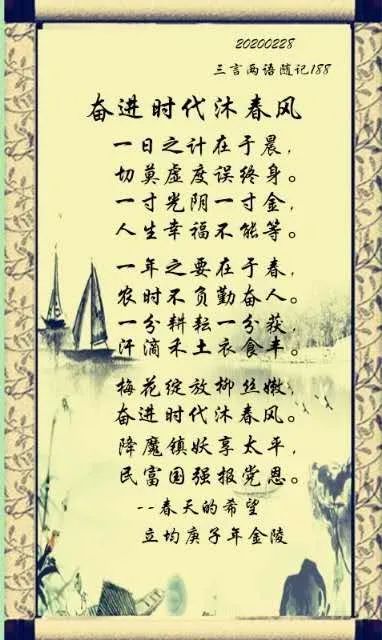 20200228
三言两语随记188
奋进时代沐春风
一日之计在于晨，
切莫虚度误终身。
一寸光阴一寸金，
人生幸福不能等。
一年之要在于春，
农时不负勤奋人。
一分耕耘一分获，
汗滴禾土衣食丰。
梅花绽放柳丝嫩，
奋进时代沐春风。
降魔镇妖享太平，
民富国强报党恩。
--春天的希望
立均庚子年金陵